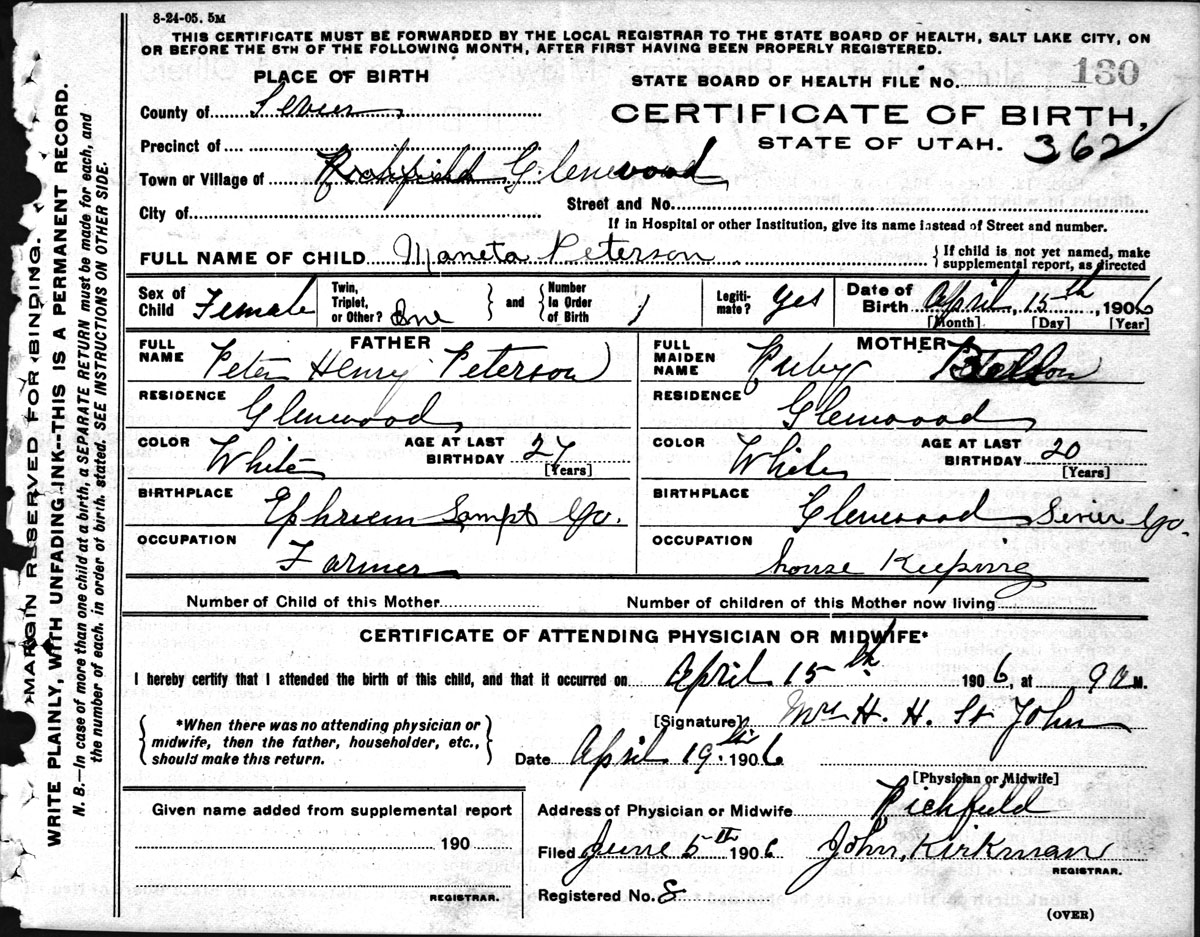 8-24-05. 5M
THIS CERTIFICATE MUST BE FORWARDED BY THE LOCAL REGISTRAR TO THE STATE BOARD OF HEALTH, SALT LAKE CITY, ON
OR BEFORE THE 5TH OF THE FOLLOWING MONTH, AFTER FIRST HAVING BEEN PROPERLY REGISTERED.
MARGIN RESERVED FOR BINDING.
WRITE PLAINLY, WITH UNFADING INK--THIS IS A PERMANENT RECORD.
N. B.—In case of more than one child at a birth, a SEPARATE RETURN must be made for each, and
the number of each, in order of birth, stated. SEE INSTRUCTIONS ON OTHER SIDE.
PLACE OF BIRTH
STATE BOARD OF HEALTH FILE No. 130
County of Sevier
CERTIFICATE OF BIRTH,
STATE OF UTAH. 362
Precinct of
Town or Village of Richfield Glenwood
City of Street and No.
If in Hospital or other Institution, give its name instead of Street and number.
FULL NAME OF CHILD Maneta Peterson {If child is not yet named, make
supplemental report, as directed
Sex of Child Female Twin, Triplet, or Other? One } and { Number In Order of Birth 1 Legiti-mate? Yes Date of Birth April, 15th, 1906
[Month] [Day] [Year]
FATHER MOTHER
FULL NAME Peter Henry Peterson FULL MAIDEN NAME Ruby
RESIDENCE Glenwood RESIDENCE Glenwood
COLOR White AGE AT LAST BIRTHDAY 27 [Years] COLOR White AGE AT LAST BIRTHDAY 20 [Years]
BIRTHPLACE Ephriem Sampt Co. BIRTHPLACE Glenwood Sevier Co.
OCCUPATION Farmer OCCUPATION house Keeping
Number of Child of this Mother Number of children of this Mother now living
CERTIFICATE OF ATTENDING PHYSICIAN OR MIDWIFE*
I hereby certify that I attended the birth of this child, and that it occurred on April 15th 1906, at 9 a M.
{ *When there was no attending physician or
midwife, then the father, householder, etc.,
should make this return. }
[Signature] Mrs H. H. St John
Date April 19th 1906
[Physician or Midwife]
Given name added from supplemental report
190
REGISTRAR.
Address of Physician or Midwife Richfield
Filed June 5th 1906 John Kirkman
REGISTRAR.
Registered No. 8
(OVER)